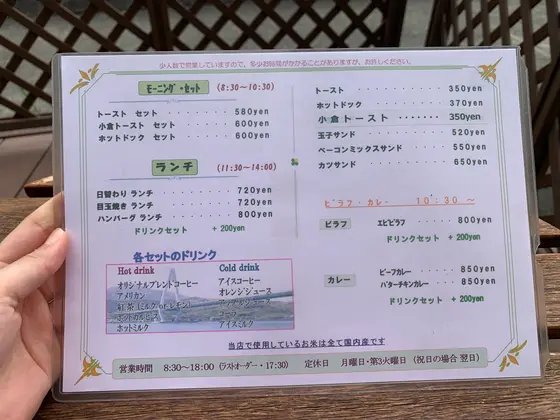 少人数で営業していますので、多少お時間がかかることがありますが、お許しください。
モーニング・セット (8:30～10:30)
トースト セット ・・・・・・・ 580yen
小倉トースト セット ・・・・・・ 600yen
ホットドック セット ・・・・・・ 600yen
ランチ (11:30～14:00)
日替わり ランチ ・・・・・・・ 720yen
目玉焼き ランチ ・・・・・・・ 720yen
ハンバーグ ランチ ・・・・・・ 800yen
ドリンクセット + 200yen
各セットのドリンク
Hot drink
オリジナルブレンドコーヒー
アメリカン
紅茶(ミルク or レモン)
ホットカルピス
ホットミルク
Cold drink
アイスコーヒー
オレンジジュース
アイスミルク
トースト ・・・・・・・・ 350yen
ホットドック ・・・・・・・ 370yen
小倉トースト ・・・・・・・ 350yen
玉子サンド ・・・・・・・ 520yen
ベーコンミックスサンド ・・・・ 550yen
カツサンド ・・・・・・・ 650yen
ピラフ・カレー 10:30～
ピラフ エビピラフ ・・・・・ 800yen
ドリンクセット + 200yen
カレー ビーフカレー ・・・・・ 850yen
バターチキンカレー ・・・・ 850yen
ドリンクセット + 200yen
当店で使用しているお米は全て国内産です
営業時間 8:30～18:00 (ラストオーダー・17:30) 定休日 月曜日・第3火曜日 (祝日の場合 翌日)